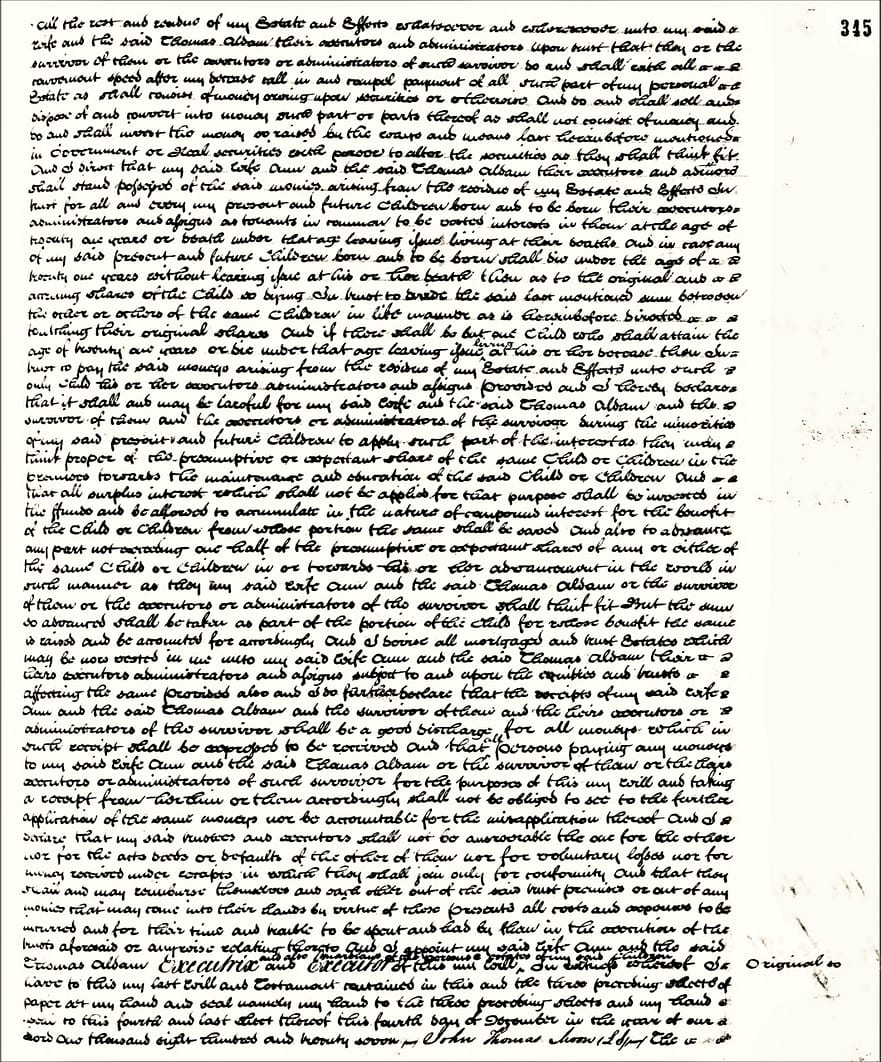 345
all the rest and residue of my Estate and Effects whatsoever and wheresoever unto my said
wife and the said Thomas Aldam their executors and administrators upon trust that they or the
survivor of them or the executors or administrators of such survivor do and shall with all
convenient speed after my decease call in and compel payment of all such part of my personal
Estate as shall consist of money owing upon securities or otherwise And do and shall sell and
dispose of and convert into money such part or parts thereof as shall not consist of money and
do and shall invest the money so raised by the ways and means last hereinbefore mentioned
in Government or Real securities with power to alter the securities as they shall think fit
And I direct that my said Wife Ann and the said Thomas Aldam their executors and admors
shall stand possessed of the said monies arising from the residue of my Estate and Effects In
trust for all and every my present and future Children born and to be born their executors
administrators and assigns as tenants in common to be vested interests in them at the age of
twenty one years or death under that age leaving issue living at their deaths And in case any
of my said present and future Children born and to be born shall die under the age of
twenty one years without leaving issue at his or her death then as to the original and
accruing shares of the Child so dying In trust to divide the said last mentioned sum between
the other or others of the same Children in like manner as is hereinbefore directed
touching their original shares And if there shall be but one Child who shall attain the
age of twenty one years or die under that age leaving issue living at his or her decease then In
trust to pay the said moneys arising from the residue of my Estate and Effects unto such
only Child his or her executors administrators and assigns Provided and I hereby declare
that it shall and may be lawful for my said Wife and the said Thomas Aldam and the
survivor of them and the executors or administrators of the survivor during the minorities
of my said present and future Children to apply such part of the interest as they may
think proper of the presumptive or expectant share of the same Child or Children in the
premises towards the maintenance and education of the said Child or Children And
that all surplus interest which shall not be applied for that purpose shall be invested in
the ffunds and be allowed to accumulate in the nature of compound interest for the benefit
of the Child or Children from whose portion the same shall be saved And also to advance
any part not exceeding one half of the presumptive or expectant shares of any or either of
the same Child or Children in or towards his or her advancement in the world in
such manner as they my said Wife Ann and the said Thomas Aldam or the survivor
of them or the executors or administrators of the survivor shall think fit But the sum
so advanced shall be taken as part of the portion of the Child for whose benefit the same
is raised and be accounted for accordingly And I devise all mortgaged and trust Estates which
may be now vested in me unto my said Wife Ann and the said Thomas Aldam their
heirs executors administrators and assigns subject to and upon the equities and trusts
affecting the same Provided also and I do further declare that the receipts of my said Wife
Ann and the said Thomas Aldam and the survivor of them and the heirs executors or
administrators of the survivor shall be a good discharge for all moneys which in
such receipt shall be expressed to be received And that all persons paying any moneys
to my said Wife Ann and the said Thomas Aldam or the survivor of them or the heirs
executors or administrators of such survivor for the purposes of this my will and taking
a receipt from her him or them accordingly shall not be obliged to see to the further
application of the same moneys nor be accountable for the misapplication thereof And I
declare that my said trustees and executors shall not be answerable the one for the other
nor for the acts deeds or defaults of the other of them nor for voluntary losses nor for
money received under receipts in which they shall join only for conformity And that they
shall and may reimburse themselves and each other out of the said trust premises or out of any
monies that may come into their hands by virtue of these Presents all costs and expenses to be
incurred and for their time and trouble to be spent and had by them in the execution of the
trusts aforesaid or anywise relating thereto And I appoint my said Wife Ann and the said
Thomas Aldam Executrix and Executor and also Guardians of the persons & estates of my said Children of this my Will In witness whereof I
Original so
have to this my last Will and Testament contained in this and the three preceding sheets of
paper set my hand and seal namely my hand to the three preceding sheets and my hand
seal to this fourth and last sheet thereof this fourth day of December in the year of our
Lord One thousand eight hundred and twenty seven John Thomas Moon (LS) The